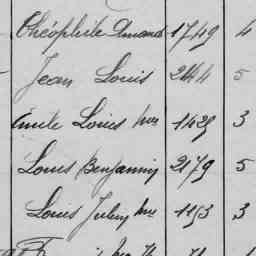 Théophile Amand 1749 4
Jean Louis 2414 5
Emile Louis 1425 3
Louis Benjamin 2179 5
Louis Jules 1153 3